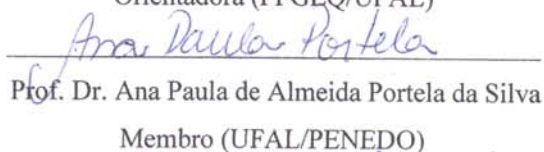 Orientadora (PPGEQ/UFAL)
Ana Paula Portela
Prof. Dr. Ana Paula de Almeida Portela da Silva
Membro (UFAL/PENEDO)